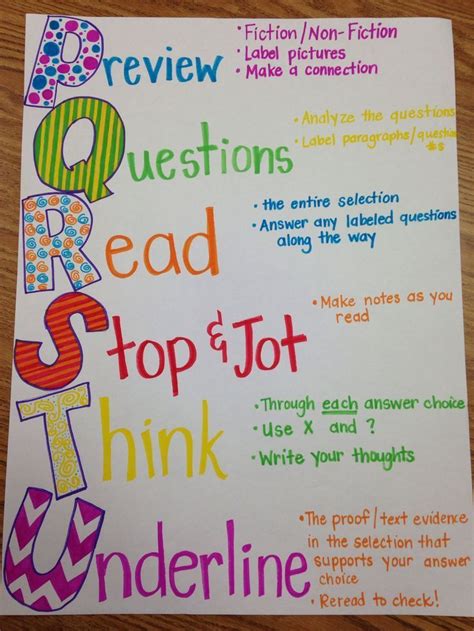 • Fiction/Non-Fiction
Preview • Label pictures
• Make a connection
• Analyze the questions
Questions • Label paragraphs/question
#s
• the entire selection
Read • Answer any labeled questions
along the way
Stop & Jot • Make notes as you
read
• Through each answer choice
Think • Use X and ?
• Write your thoughts
• The proof/text evidence
Underline in the selection that
supports your answer
choice
• Reread to check!